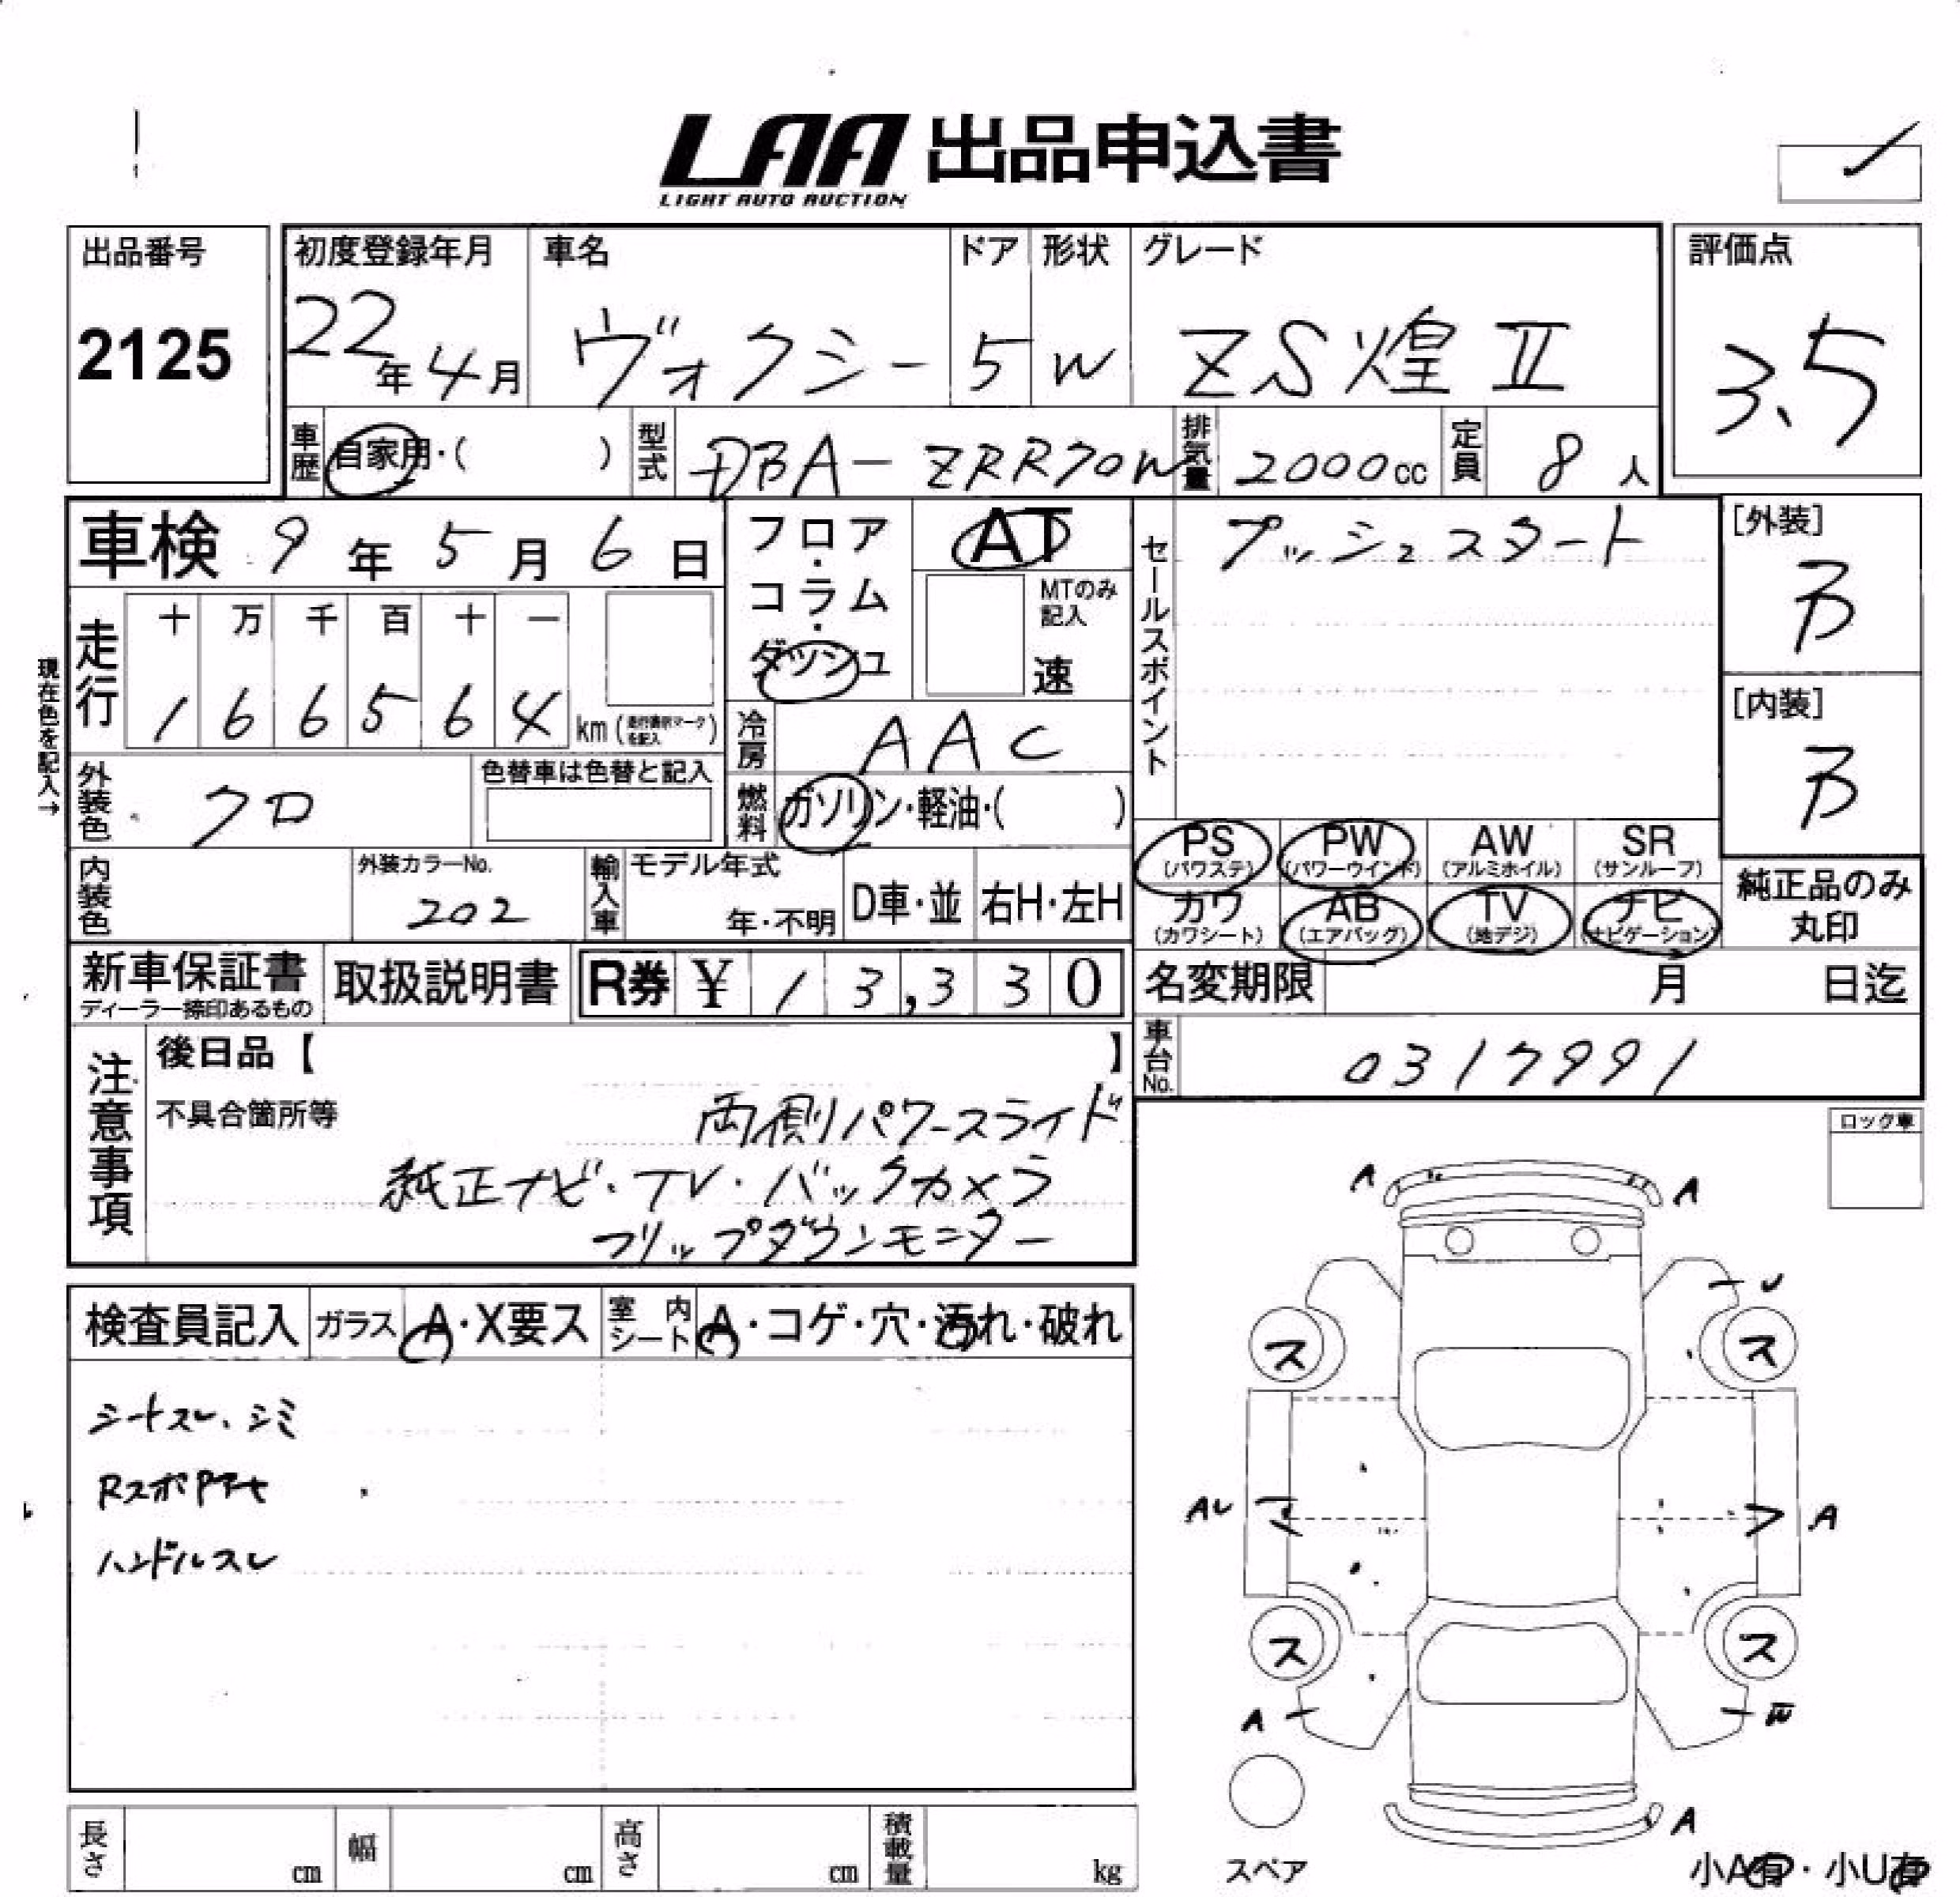 LAA 出品申込書
LIGHT AUTO AUCTION
出品番号
2125
初度登録年月
22年 4月
車名
ヴォクシー
ドア
5
形状
W
グレード
ZS煌Ⅱ
評価点
3.5
車歴 自家用・( )
型式 DBA-ZRR70W
排気量 2000cc
定員 8人
車検 9年 5月 6日
走行 十 万 千 百 十 一
1 6 6 5 6 4 km (走行表示マークを記入)
現在色を記入→
外装色 クロ
色替車は色替と記入
内装色
外装カラーNo.
202
フロア・コラム・ダッシュ
AT
MTのみ記入
速
冷房 AAC
燃料 ガソリン・軽油・( )
輸入車 モデル年式
年・不明
D車・並
右H・左H
セールスポイント
プッシュスタート
[外装]
B
[内装]
B
PS (パワステ)
PW (パワーウインド)
AW (アルミホイル)
SR (サンルーフ)
カワ (カワシート)
AB (エアバッグ)
TV (地デジ)
ナビ (ナビゲーション)
純正品のみ丸印
新車保証書
ディーラー捺印あるもの
取扱説明書
R券 ¥ 13,330
名変期限 月 日迄
車台No. 0317991
注意事項
後日品【 】
不具合箇所等
両側パワースライド
純正ナビ・TV・バックカメラ
フリップダウンモニター
ロック車
検査員記入
ガラス A・X要ス
室内シート A・コゲ・穴・汚れ・破れ
シートスレ、シミ
ハンドルスレ
A A
U
ス ス
AU A
ス ス
A W
A
スペア
小A有・小U有
長さ cm
幅 cm
高さ cm
積載量 kg